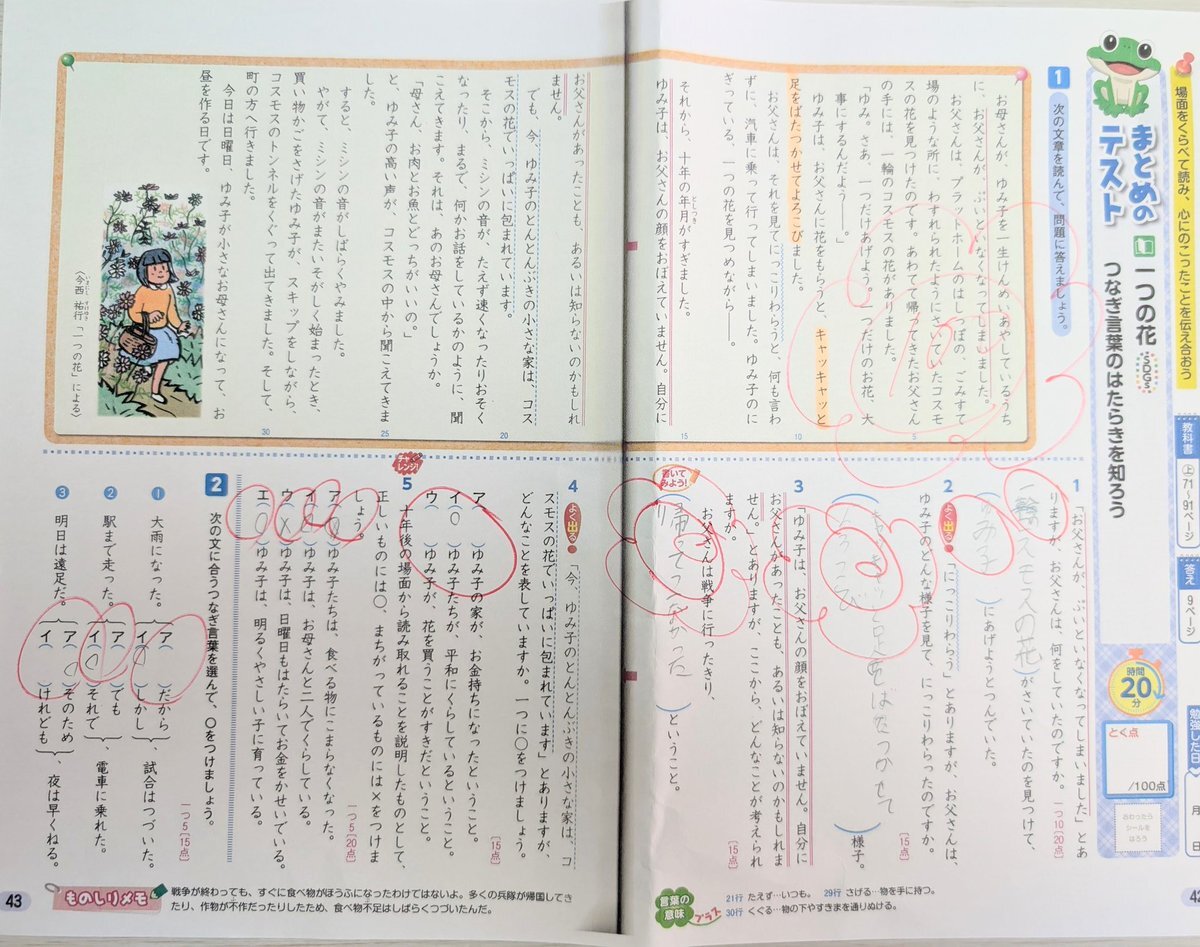 場面をくらべて読み、心にのこったことを伝え合おう
教科書
上71〜91ページ
答え
9ページ
勉強した日
月
日
まとめの
テスト
一つの花
SDGs
つなぎ言葉のはたらきを知ろう
時間
20分
とく点
/100点
おわったら
シールを
はろう
1
次の文章を読んで、問題に答えましょう。
お母さんが、ゆみ子を一生けんめいあやしているうち
に、お父さんが、ぷいといなくなってしまいました。
お父さんは、プラットホームのはしっぽの、ごみすて
場のような所に、わすれられたようにさいていたコスモ
スの花を見つけたのです。あわてて帰ってきたお父さん
の手には、一輪のコスモスの花がありました。
「ゆみ。さあ、一つだけあげよう。一つだけのお花、大
事にするんだよう――。」
ゆみ子は、お父さんに花をもらうと、キャッキャッと
足をばたつかせてよろこびました。
お父さんは、それを見てにっこりわらうと、何も言わ
ずに、汽車に乗って行ってしまいました。ゆみ子のに
ぎっている、一つの花を見つめながら――。
それから、十年の年月がすぎました。
としつき
ゆみ子は、お父さんの顔をおぼえていません。自分に
お父さんがあったことも、あるいは知らないのかもしれ
ません。
でも、今、ゆみ子のとんとんぶきの小さな家は、コス
モスの花でいっぱいに包まれています。
そこから、ミシンの音が、たえず速くなったりおそく
なったり、まるで、何かお話をしているかのように、聞
こえてきます。それは、あのお母さんでしょうか。
「母さん、お肉とお魚とどっちがいいの。」
と、ゆみ子の高い声が、コスモスの中から聞こえてきま
した。
すると、ミシンの音がしばらくやみました。
やがて、ミシンの音がまたいそがしく始まったとき、
買い物かごをさげたゆみ子が、スキップをしながら、
コスモスのトンネルをくぐって出てきました。そして、
町の方へ行きました。
今日は日曜日、ゆみ子が小さなお母さんになって、お
昼を作る日です。
5
10
15
20
25
30
〈今西 祐行「一つの花」による〉
いまにし すけゆき
1
「お父さんが、ぷいといなくなってしまいました」とあ
りますが、お父さんは、何をしていたのですか。
一つ10〔20点〕
一輪のコスモスの花
（ ）がさいていたのを見つけて、
（ゆみ子）にあげようとつんでいた。
2
よく出る
「にっこりわらう」とありますが、お父さんは、
ゆみ子のどんな様子を見て、にっこりわらったのですか。
〔15点〕
（キャッキャッと足をばたつかせて
よろこび）様子。
3
「ゆみ子は、お父さんの顔をおぼえていません。自分に
お父さんがあったことも、あるいは知らないのかもしれま
せん。」とありますが、ここから、どんなことが考えられ
ますか。
〔15点〕
書いて
みよう!
お父さんは戦争に行ったきり、
（帰ってこなかった）ということ。
4
よく出る
「今、ゆみ子のとんとんぶきの小さな家は、コ
スモスの花でいっぱいに包まれています」とありますが、
どんなことを表していますか。一つに○をつけましょう。
〔15点〕
ア（ ）ゆみ子の家が、お金持ちになったということ。
イ（○）ゆみ子たちが、平和にくらしているということ。
ウ（ ）ゆみ子が、花を買うことがすきだということ。
チャレンジ!
5
十年後の場面から読み取れることを説明したものとして、
正しいものには○、まちがっているものには×をつけま
しょう。
一つ5〔20点〕
ア（○）ゆみ子たちは、食べる物にこまらなくなった。
イ（○）ゆみ子は、お母さんと二人でくらしている。
ウ（×）ゆみ子は、日曜日もはたらいてお金をかせいでいる。
エ（○）ゆみ子は、明るくやさしい子に育っている。
2
次の文に合うつなぎ言葉を選んで、○をつけましょう。
一つ5〔15点〕
① 大雨になった。
ア（ ）だから
イ（○）しかし
、試合はつづいた。
② 駅まで走った。
ア（ ）でも
イ（○）それで
、電車に乗れた。
③ 明日は遠足だ。
ア（○）そのため
イ（ ）けれども
、夜は早くねる。
言葉の
意味
プラス
21行 たえず…いつも。 29行 さげる…物を手に持つ。
30行 くぐる…物の下やすきまを通りぬける。
42
43
ものしりメモ
戦争が終わっても、すぐに食べ物がほうふになったわけではないよ。多くの兵隊が帰国してき
たり、作物が不作だったりしたため、食べ物不足はしばらくつづいたんだ。